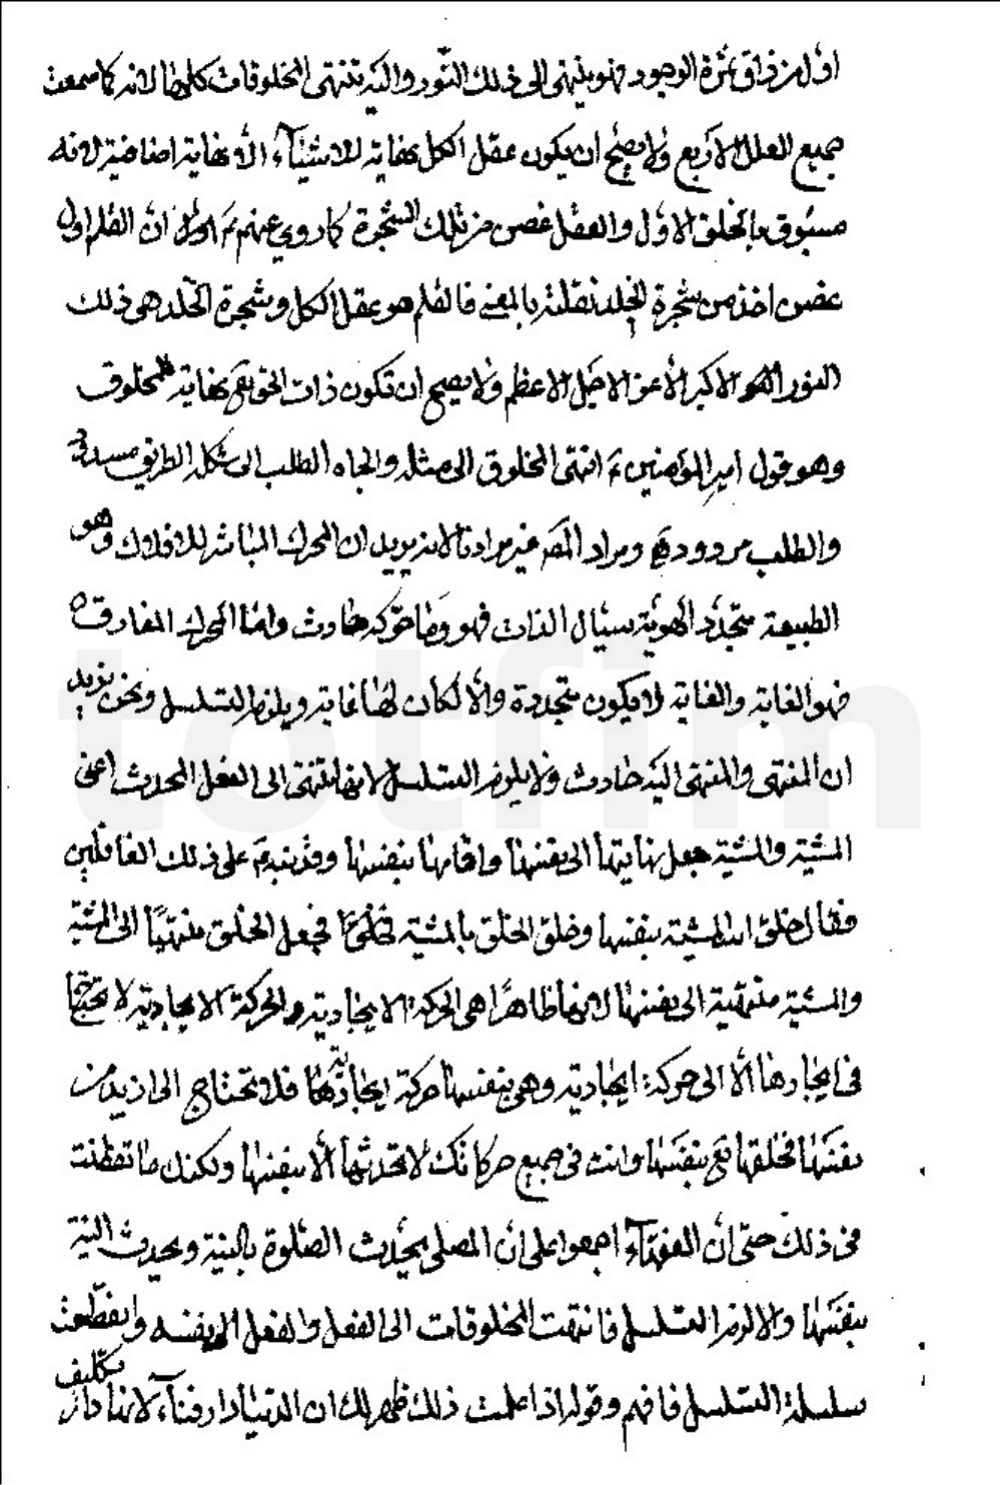 اوّل من ذاق ثمرة الوجود فهو ينتهى الى ذلك النّور واليه تنتهى المخلوقات كلها لانه كما سمعت
جميع العلل الاربع ولا يصحّ ان يكون عقل الكل نهاية للاشيآء الّا نهاية اضافية لانه
مسبُوق بالخلق الاوّل والعقل غصن من تلك الشجرة كما روي عنهم ان القلم اول
غصن اخذ من شجرة الخلد نقلته بالمعنى فالقلم هو عقل الكل وشجرة الخلد هى ذلك
النور الاكبر الأعز الاجل الاعظم ولا يصح ان تكون ذات الحق تع نهاية للمخلوق
وهو قول امير المؤمنين ع انتهى المخلوق الى مثله والجاه الطلب الى شكله الطريق مسدود
والطلب مردود ومراد المصَ غير مرادنا لانه يريد ان المحرك المباشر للافلاك وهو
الطبيعة متجدّد الهويّة سيّال الذات فهو وما حركه حادث وامّا المحرك المفارق
فهو الغاية والغاية لا يكون متجددة والّا لكان لها غاية ويلزم التسلسل ونحن نريد
ان المنتهى والمنتهى اليه حادث ولا يلزم التسلسل لانها تنتهى الى الفعل المحدث اعنى
المشيّة والمشيّة جعل نهايتها الى نفسها واقامها بنفسها وقد نبه على ذلك الغافلين
فقال خلق الله المشيّة بنفسها وخلق الخلق بالمشيّة فجعل الخلق منتهيًا الى المشيّة
والمشيّة منتهية الى نفسها لانها ظاهرًا هى الحركة الايجادية والحركة الايجادية لا تحتاج
فى ايجادها الّا الى حركة ايجادية وهى بنفسها حركة ايجاديّة فلا تحتاج الى ازيد من
نفسها فخلقها تع بنفسها وانت فى جميع حركاتك لا تحدثها الّا بنفسها ولكنك ما تفطنت
فى ذلك حتى انّ الفقهآء اجمعوا على انّ المصلى يحدث الصّلوة بالنية ويحدث النية
بنفسها والا لزم التسلسل فانتهت المخلوقات الى الفعل والفعل الى نفسه وانقطعت
سلسلة التسلسل فافهم وقوله اذا علمت ذلك ظهر لك ان الدنيا دار فنآء لانها دار تكليف